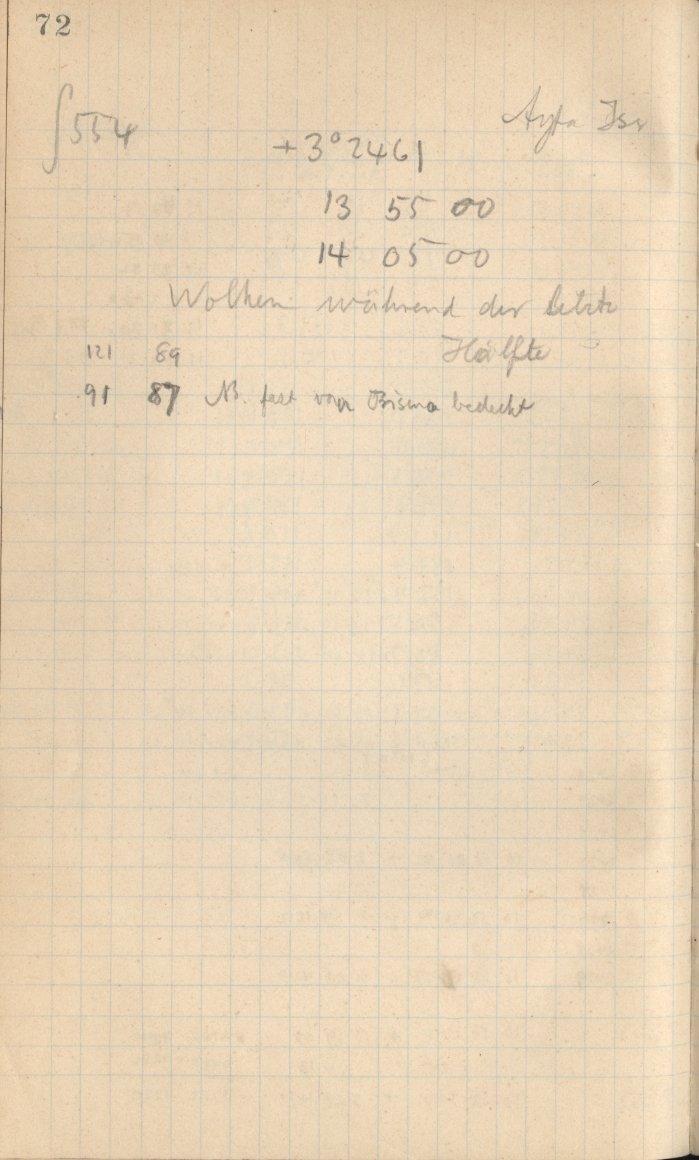 72
∫554
+3°2461
13 55 00
14 05 00
Wolken während der letzte
Hälfte
121 89
91 87 NB. fast von Bisma bedeckt